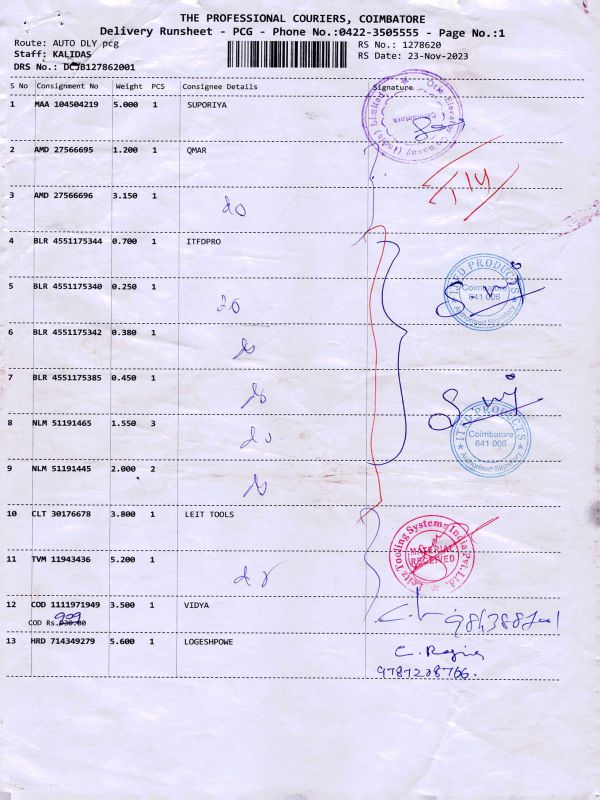 THE PROFESSIONAL COURIERS, COIMBATORE
Delivery Runsheet - PCG - Phone No.:0422-3505555 - Page No.:1
Route: AUTO DLY pcg
Staff: KALIDAS
DRS No.: DCJB127862001
RS No.: 1278620
RS Date: 23-Nov-2023
S No Consignment No Weight PCS Consignee Details Signature
1 MAA 104504219 5.000 1 SUPORIYA
2 AMD 27566695 1.200 1 QMAR
3 AMD 27566696 3.150 1 do
4 BLR 4551175344 0.700 1 ITFDPRO
5 BLR 4551175340 0.250 1 do
6 BLR 4551175342 0.380 1
7 BLR 4551175385 0.450 1
8 NLM 51191465 1.550 3 do
9 NLM 51191445 2.000 2
ITFD PRODUCTS
Coimbatore
641 006
Authorised Signatory
ITFD PRODUCTS
Coimbatore
641 006
Authorised Signatory
10 CLT 30176678 3.800 1 LEIT TOOLS
11 TVM 11943436 5.200 1
Leitz Tooling Systems India Pvt. Ltd.
MATERIAL
RECEIVED
12 COD 1111971949 3.500 1 VIDYA
COD Rs.
13 HRD 714349279 5.600 1 LOGESHPOWE
9787208766.